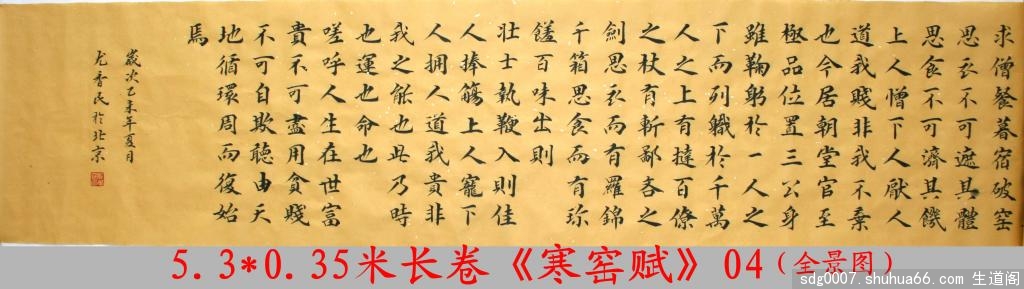 求僧餐暮宿破窑
思衣不可遮其體
思食不可濟其饑
上人憎下人厭人
道我賤非我不棄
也今居朝堂官至
極品位置三公身
雖鞠躬於一人之
下而列職於千萬
人之上有撻百僚
之杖有斬鄙吝之
劍思衣而有羅錦
千箱思食而有珍
饈百味出則
壯士執鞭入則佳
人捧觴上人寵下
人擁人道我貴非
我之能也此乃時
也運也命也
嗟呼人生在世富
貴不可盡用貧賤
不可自欺聽由天
地循環周而復始
焉
歲次乙未年夏月
於北京
5.3*0.35米长卷《寒窑赋》04（全景图）
sdg0007.shuhua66.com 生道阁